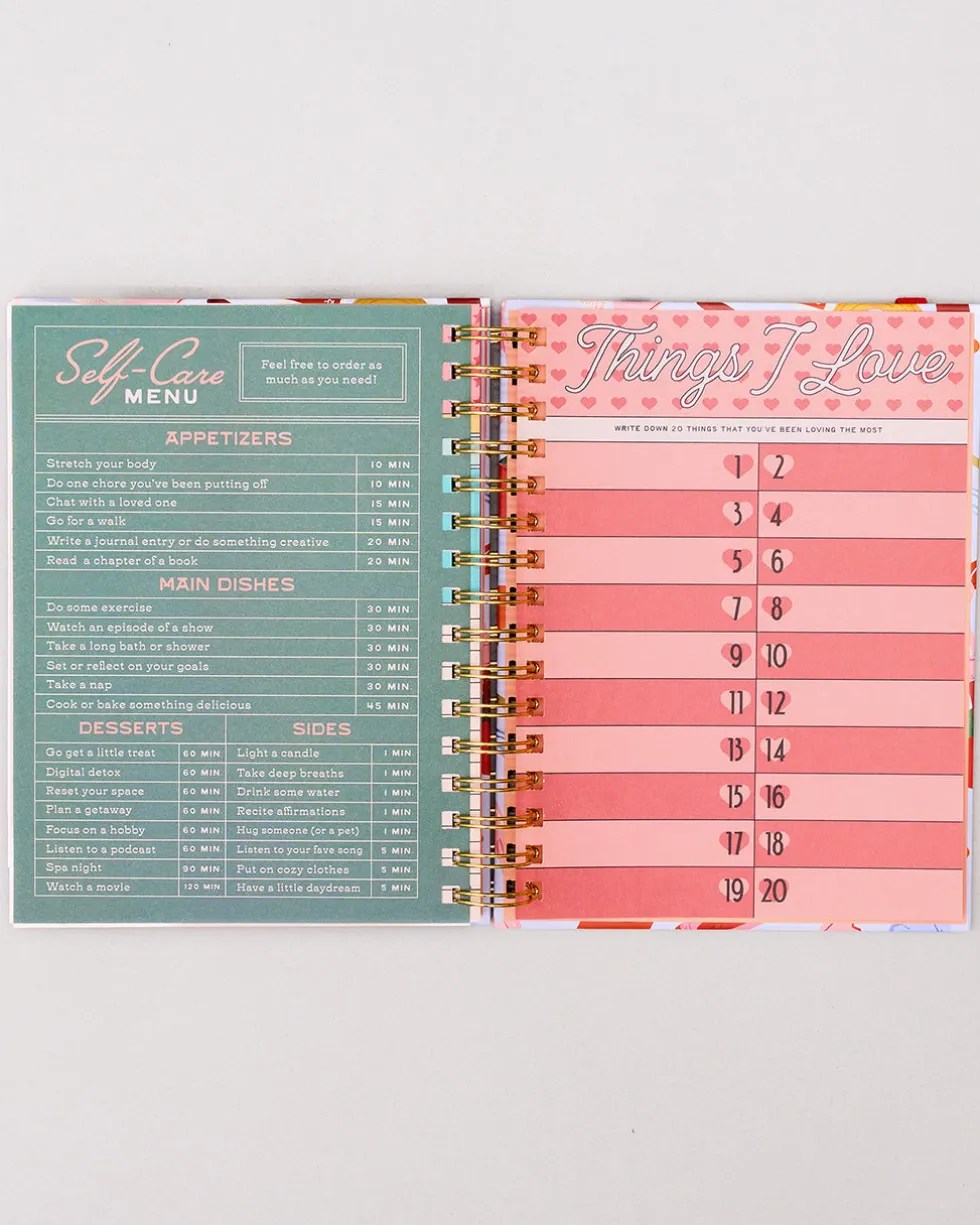 Self-Care
MENU
Feel free to order as
much as you need!
APPETIZERS
Stretch your body 10 MIN.
Do one chore you've been putting off 10 MIN.
Chat with a loved one 15 MIN.
Go for a walk 15 MIN.
Write a journal entry or do something creative 20 MIN.
Read a chapter of a book 20 MIN.
MAIN DISHES
Do some exercise 30 MIN.
Watch an episode of a show 30 MIN.
Take a long bath or shower 30 MIN.
Set or reflect on your goals 30 MIN.
Take a nap 30 MIN.
Cook or bake something delicious 45 MIN.
DESSERTS
Go get a little treat 60 MIN.
Digital detox 60 MIN.
Reset your space 60 MIN.
Plan a getaway 60 MIN.
Focus on a hobby 60 MIN.
Listen to a podcast 60 MIN.
Spa night 90 MIN.
Watch a movie 120 MIN.
SIDES
Light a candle 1 MIN.
Take deep breaths 1 MIN.
Drink some water 1 MIN.
Recite affirmations 1 MIN.
Hug someone (or a pet) 1 MIN.
Listen to your fave song 5 MIN.
Put on cozy clothes 5 MIN.
Have a little daydream 5 MIN.
Things I Love
WRITE DOWN 20 THINGS THAT YOU'VE BEEN LOVING THE MOST
1 2
3 4
5 6
7 8
9 10
11 12
13 14
15 16
17 18
19 20